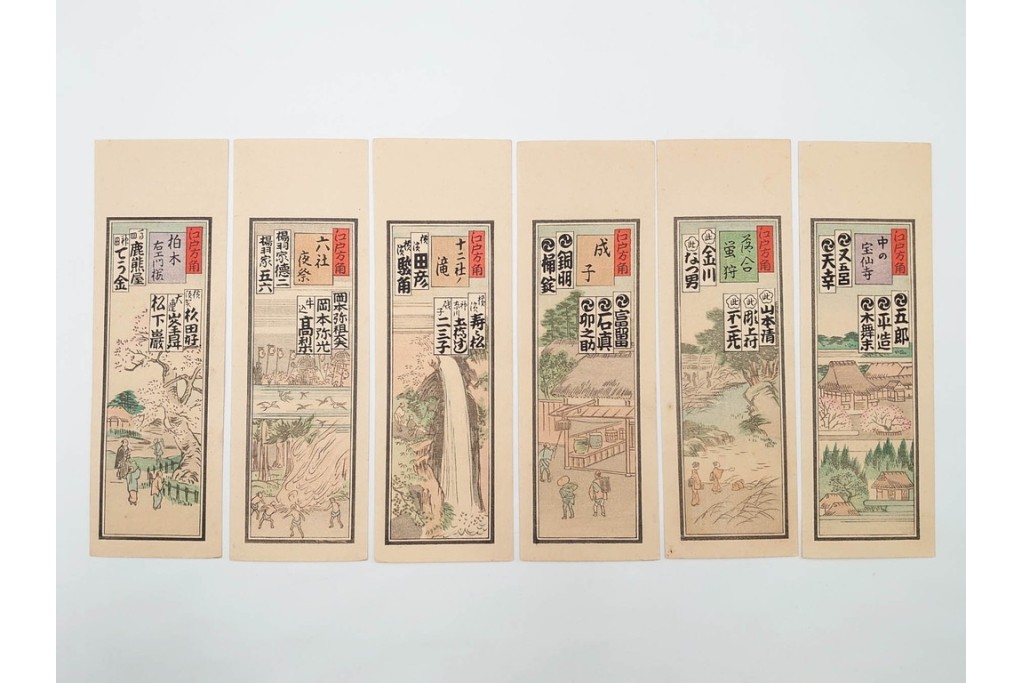 江戸方角
柏木
右エ門桜
鹿熊屋
神田
てう金
杦田好
松下巌
江戸方角
六ヶ社
夜祭
揚羽家徳二
揚羽家五六
岡本弥光
牛込
江戸方角
十二社ノ
滝
横濱 田彦
横濱 駿角
寿々松
二三子
江戸方角
成子
銅明
桶錠
富留
石真
卯之助
江戸方角
落合
蛍狩
金川
なつ男
山本清
彫上村
不二光
江戸方角
中の
宝仙寺
又五呂
天幸
五郎
平造
木舞末